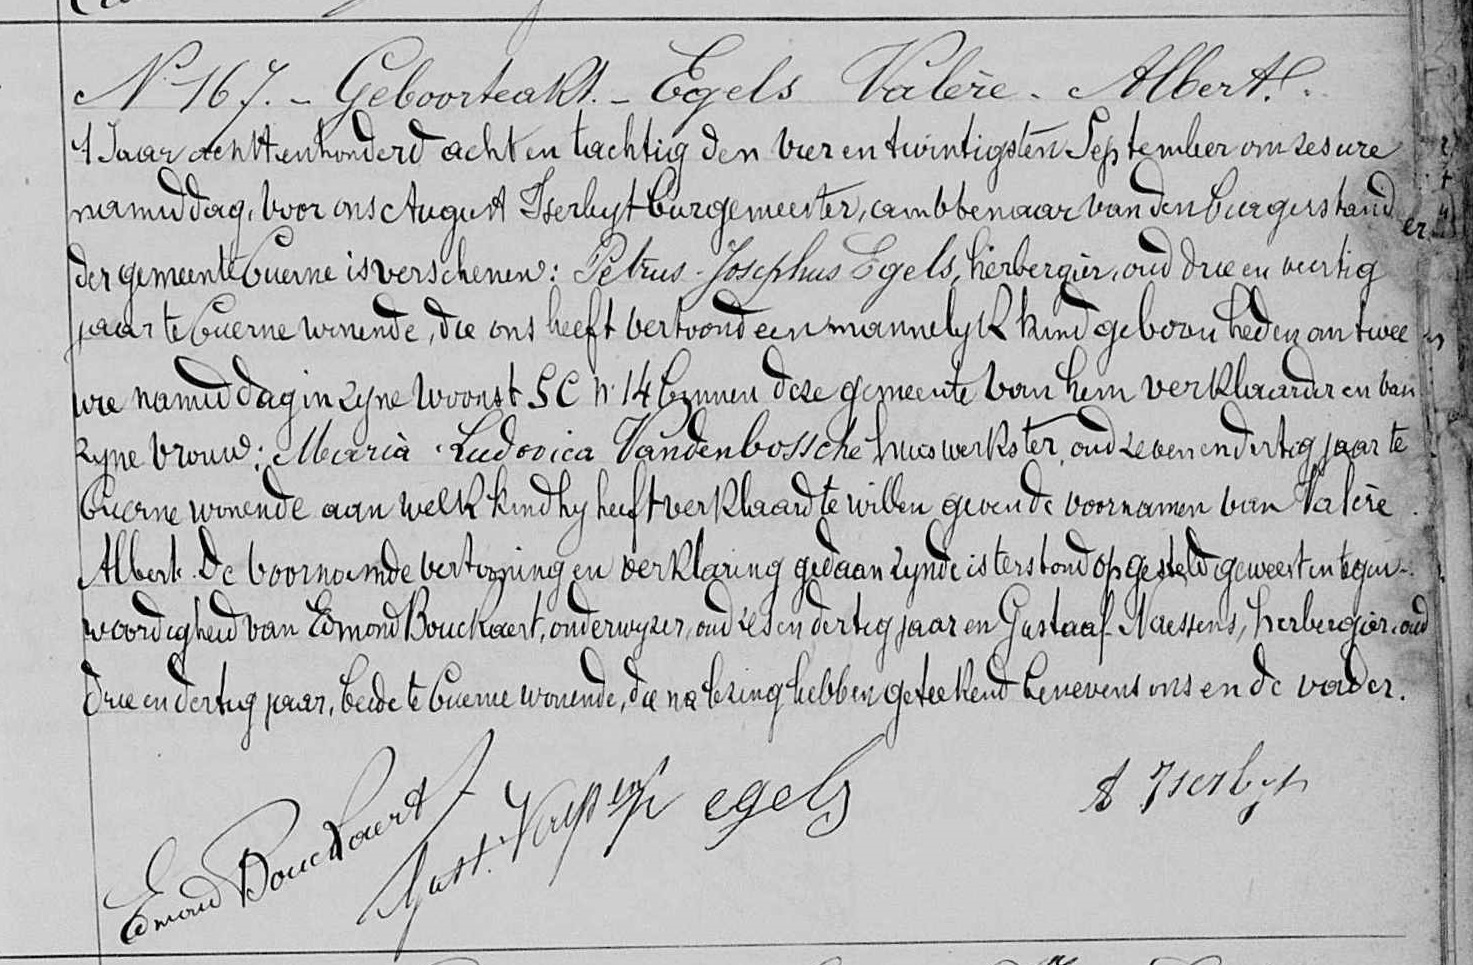 N° 167. - Geboorteakt. - Egels Valère - Albert.
't Jaar achttienhonderd acht en tachtig den vier en twintigsten September om zes ure
namiddag, voor ons August Iserbyt burgemeester, ambtenaar van den burgerstand
der gemeente Cuerne is verschenen: Petrus-Josephus Egels, herbergier, oud drie en veertig
jaar te Cuerne wonende, die ons heeft vertoond een mannelyk kind geboren heden om twee
ure namiddag in zyne woonst SC N° 14 binnen deze gemeente van hem verklaarder en van
zyne vrouw: Maria Ludovica Vandenbossche huiswerkster, oud zeven en dertig jaar te
Cuerne wonende aan welk kind hy heeft verklaard te willen geven de voornamen van Valère
Albert. De voornoemde vertooning en verklaring gedaan zynde is terstond opgesteld geweest in tegen-
woordigheid van Edmond Bouckaert, onderwyzer, oud zes en dertig jaar en Gustaaf Naessens, herbergier, oud
drie en dertig jaar, beide te Cuerne wonende, die na lezing hebben geteekend benevens ons en de vader.
Edmond Bouckaert Gust. Naessens egels A Iserbyt